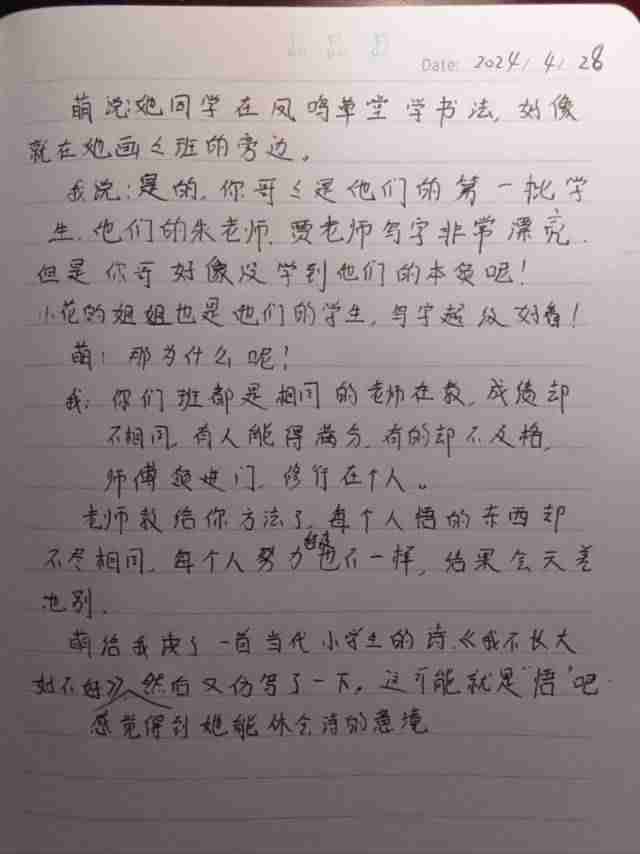 Date: 2024/4/28
萌说她同学在凤鸣草堂学书法,好像
就在她画く班的旁边。
我说:是的,你哥く是他们的第一批学
生,他们的朱老师,贾老师写字非常漂亮.
但是你哥好像没学到他们的本领呢!
小花的姐姐也是他们的学生,写字超级好看!
萌:那为什么呢!
我:你们班都是相同的老师在教,成绩却
不相同,有人能得满分,有的却不及格,
师傅领进门,修行在个人。
老师教给你方法了,每个人悟的东西却
不尽相同,每个人努力程度也不一样,结果会天差
地别.
萌给我读了一首当代小学生的诗《我不长大
好不好》然后又仿写了一下,这可能就是“悟”吧
感觉得到她能体会诗的意境